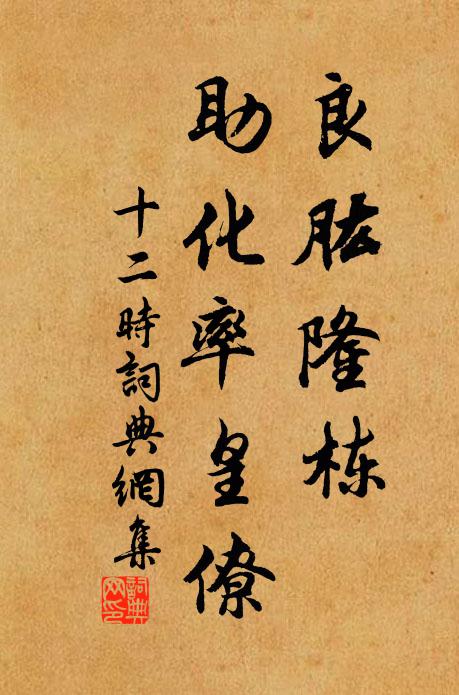 良肱隆栋
助化率皇僚
十二時詞典網集
詞典
网印